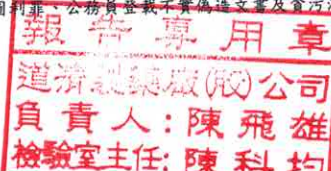 圖利罪、公務員登載不實偽造文書及貪污
報告專用章
道濟製藥廠(股)公司
負責人:陳飛雄
檢驗室主任:陳科均